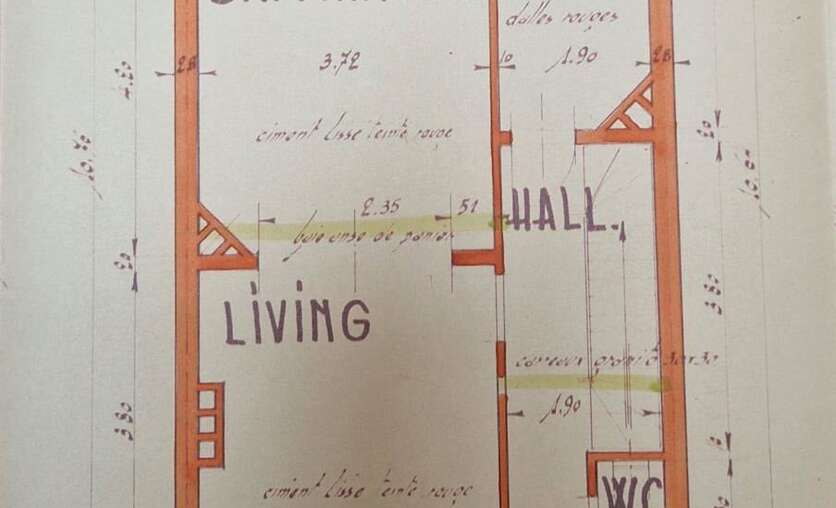 dalles rouges
28
3.72
10
1.90
28
4.20
ciment lisse teinté rouge
20
10.70
2.35
51
HALL.
baie anse de panier
20
LIVING
3.80
carreaux granito 30x30
1.90
3.80
ciment lisse teinté rouge
WC